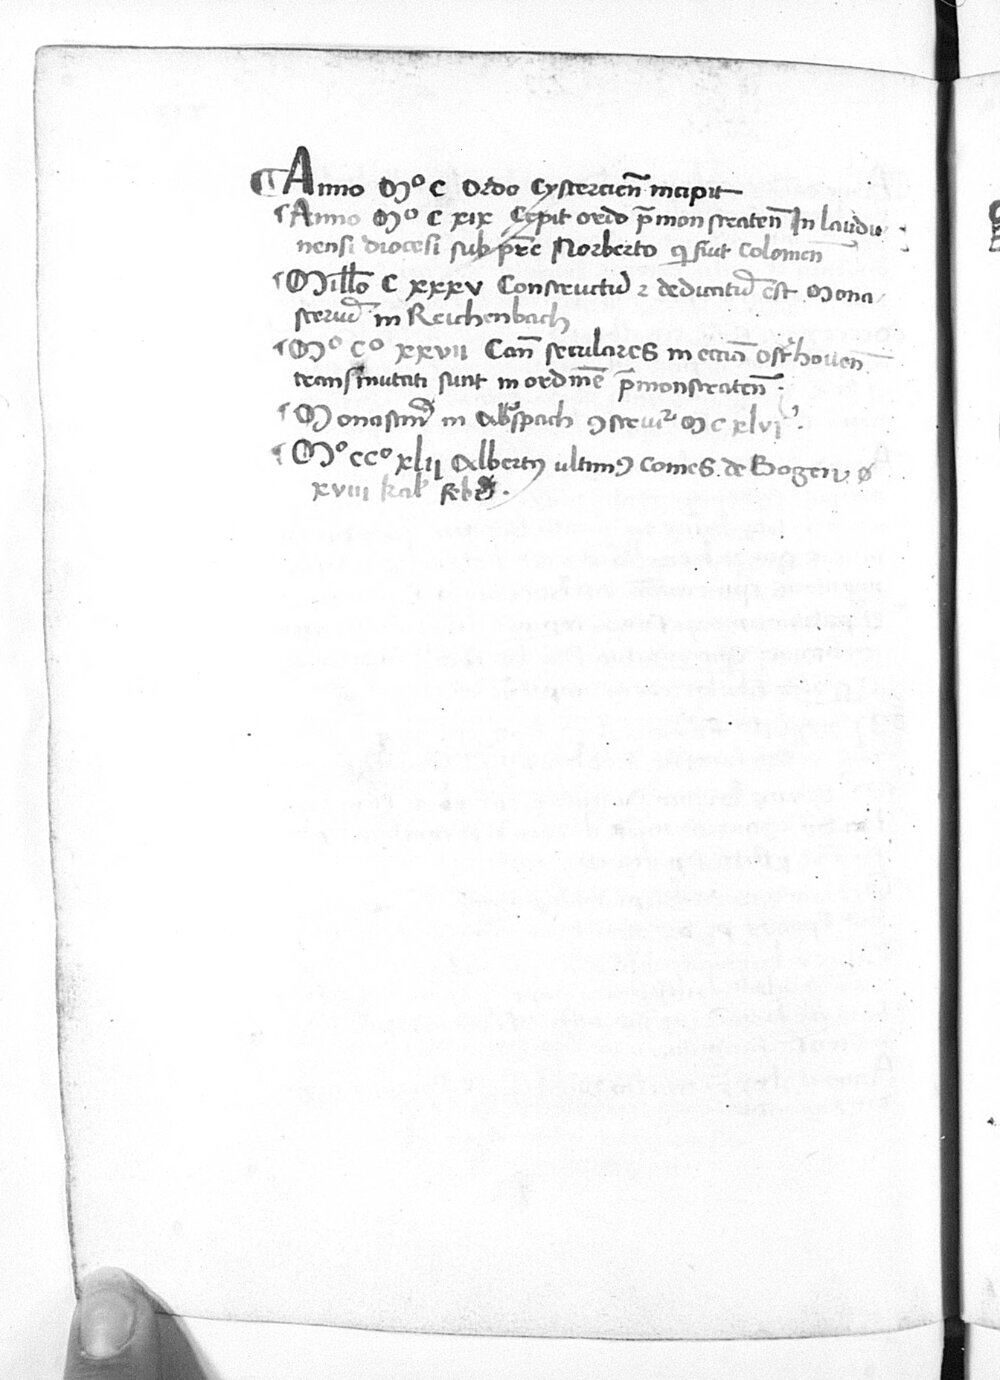 ¶ Anno Mº C Ordo Cystercieñ incipit
¶ Anno Mº C xix Cepit ordo p̄monstrateñ In laudu
nensi diocesi sub p̄re Norberto q fuit Colomeñ
¶ Milło C xxxv Constructū ⁊ dedicatū est Mona
steriū in Reichenbach
¶ Mº Cº xxvii Cañ seculares in ecc̄ia Osthoueñ
transmutati sunt in ordinē p̄monstrateñ.
¶ Monastm̄ in Albspach ꝯstruiꝉ M C xlvi.
¶ Mº CCº xlii Albertꝯ ultimꝯ Comes de Bogen ø
xviii kal febr.